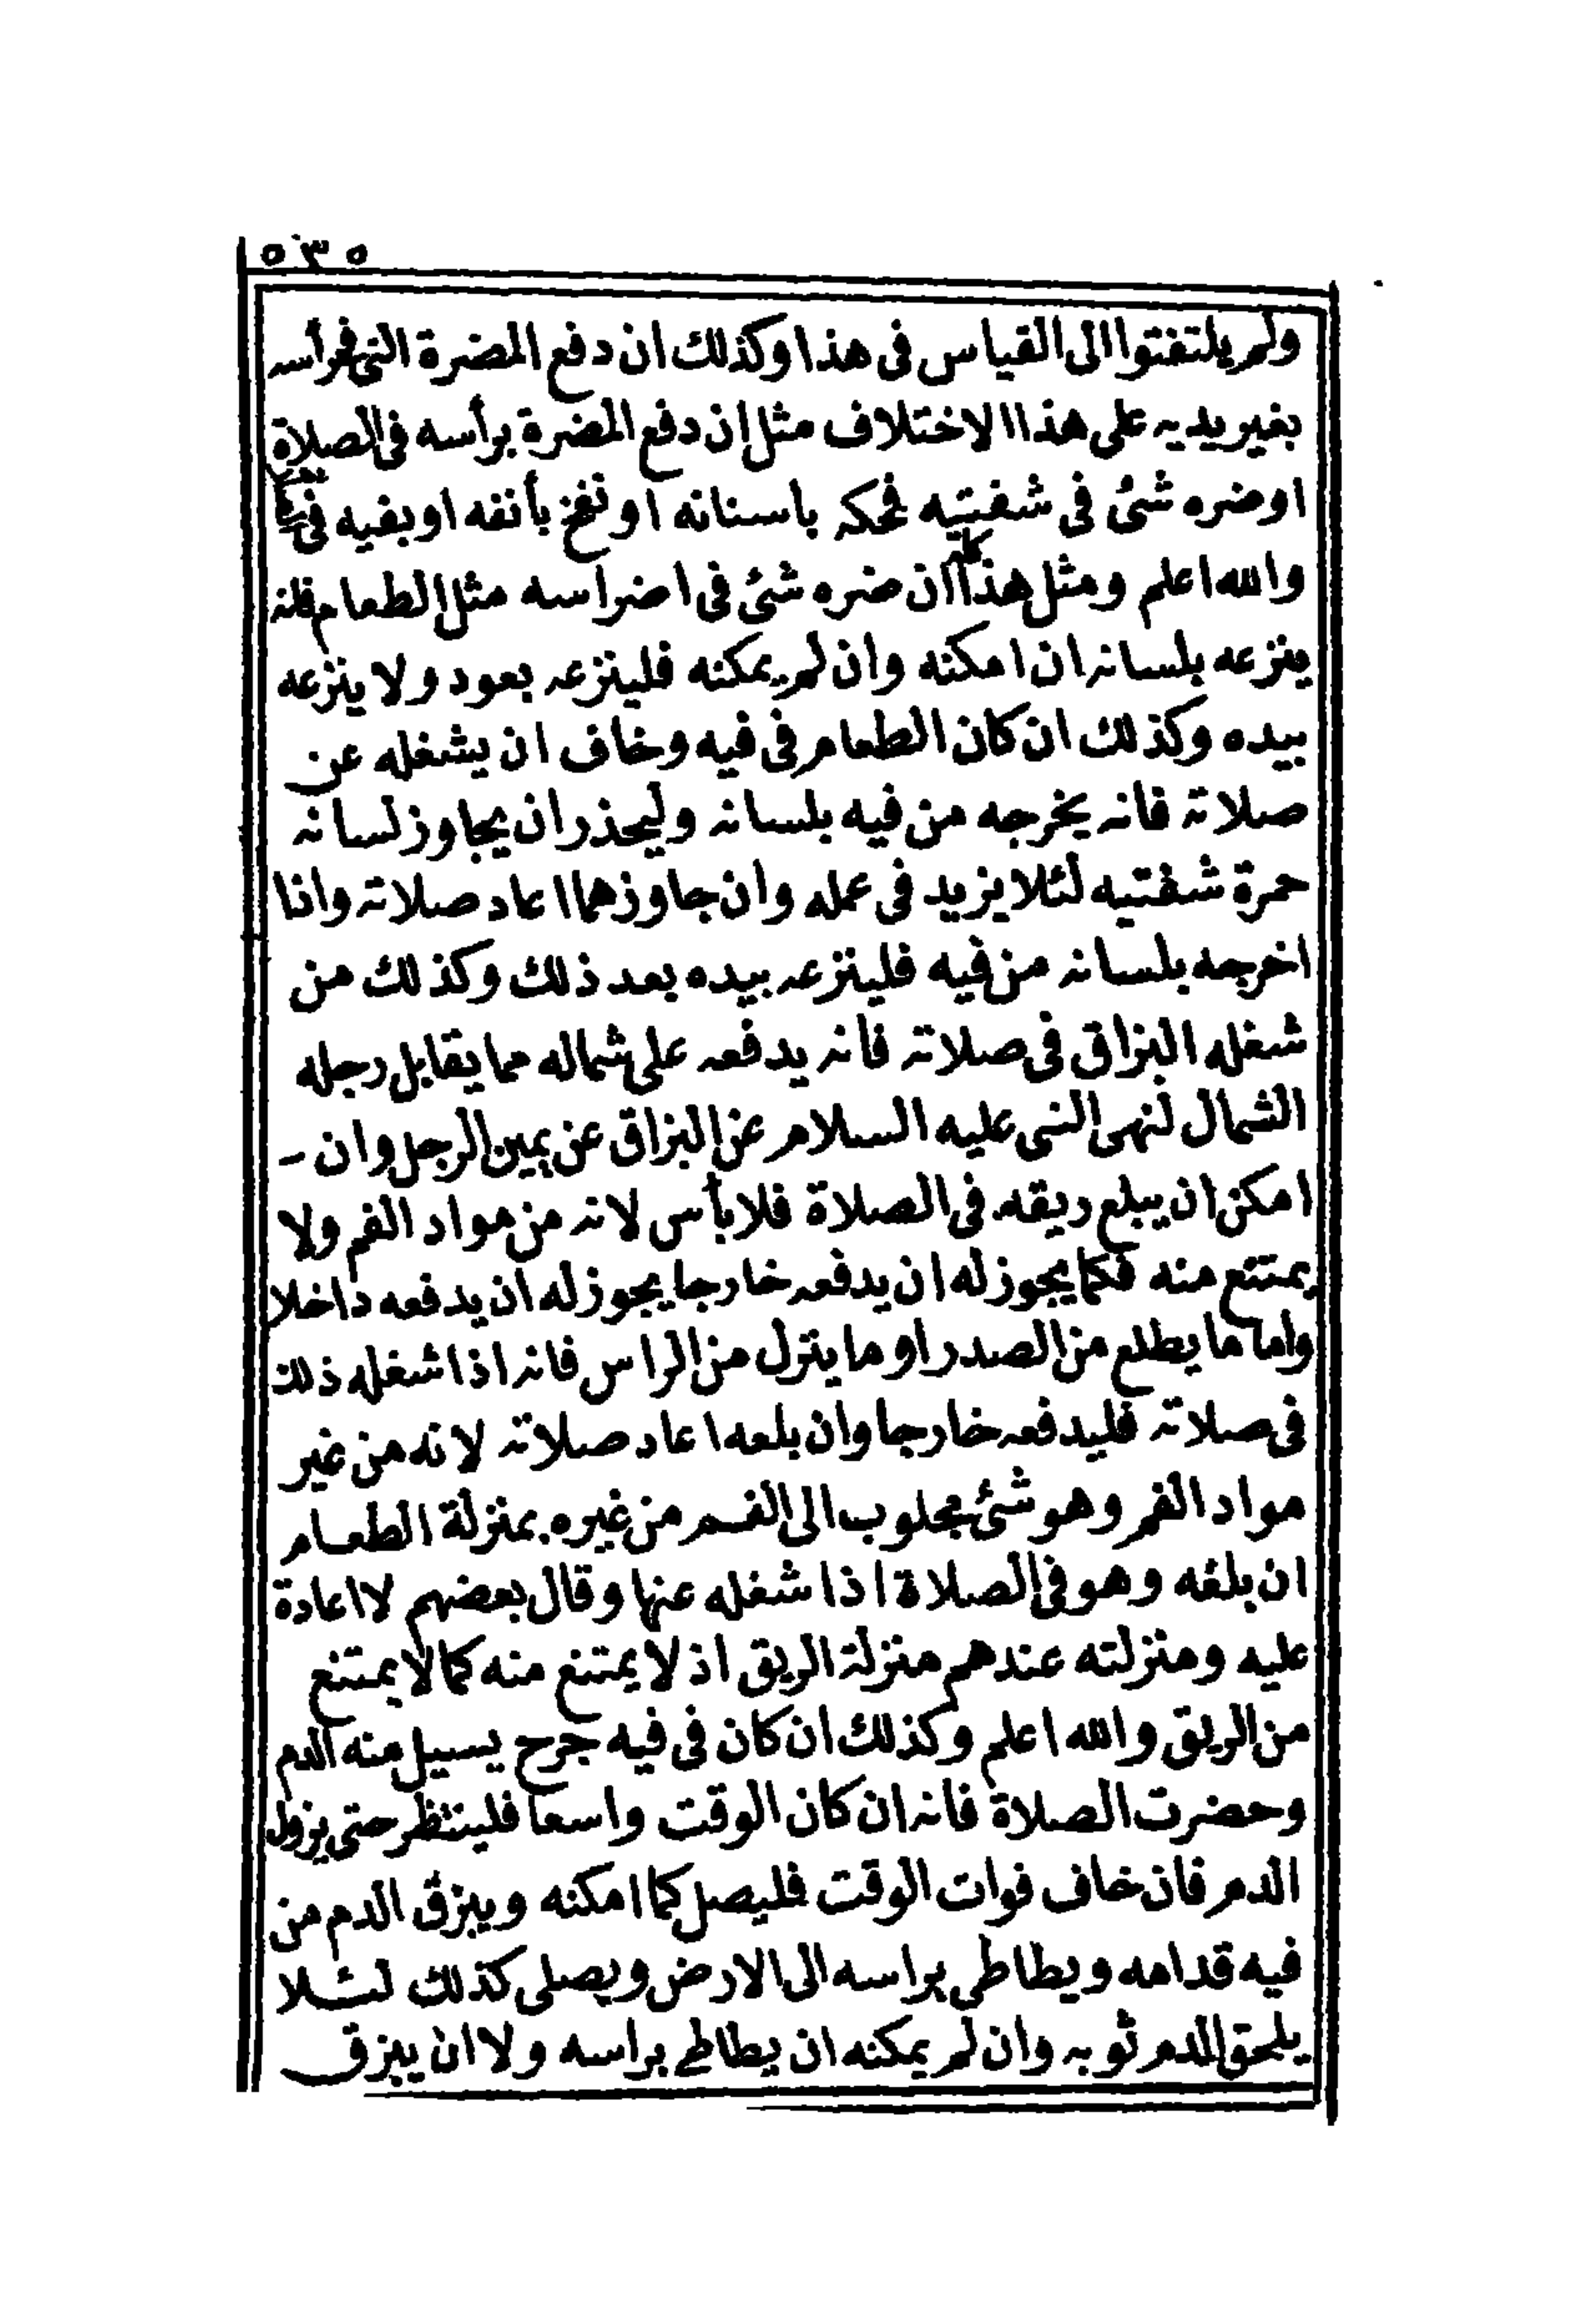 ٥٣٥
ولم يلتفتوا الى القياس فى هذا وكذلك ان دفع المضرة التى فى رأسه
بغير يديه على هذا الاختلاف مثل ان دفع المضرة برأسه فى الصلاة
او ضره شئ فى شفتيه فحكه باسنانه او نفخ بأنفه او بفيه فى
والله اعلم ومثل هذا ان ضره شئ فى اضراسه مثل الطعام فانه
ينزعه بلسانه ان امكنه وان لم يمكنه فلينزعه بعود ولا ينزعه
بيده وكذلك ان كان الطعام فى فيه وخاف ان يشغله عن
صلاته فانه يخرجه من فيه بلسانه وليحذر ان يجاوز لسانه
حمرة شفتيه لئلا يزيد فى عمله وان جاوزهما اعاد صلاته واذا
اخرجه بلسانه من فيه فلينزعه بيده بعد ذلك وكذلك من
شغله البزاق فى صلاته فانه يدفعه على شماله مما يقابل رجله
الشمال لنهى النبى عليه السلام عن البزاق عن يمين الرجل وان -
امكن ان يبلع ريقه فى الصلاة فلا بأس لانه من مواد الفم ولا
يمتنع منه فكما يجوز له ان يدفعه خارجا يجوز له ان يدفعه داخلا
واما ما يطلع من الصدر او ما ينزل من الراس فانه اذا شغله ذلك
فى صلاته فليدفعه خارجا وان بلعه اعاد صلاته لانه من غير
مواد الفم وهو شئ مجلوب الى الفم من غيره بمنزلة الطعام
ان بلغه وهو فى الصلاة اذا شغله عنها وقال بعضهم لا اعادة
عليه ومنزلته عندهم منزلة الريق اذ لا يمتنع منه كما لا يمتنع
من الريق والله اعلم وكذلك ان كان فى فيه جرح يسيل منه الدم
وحضرت الصلاة فانه ان كان الوقت واسعا فلينتظر حتى يزول
الدم فان خاف فوات الوقت فليصل كما امكنه ويبزق الدم من
فيه قدامه ويطاطى براسه الى الارض ويصلى كذلك لئلا
يلحق الدم ثوبه وان لم يمكنه ان يطاطى براسه ولا ان يبزق